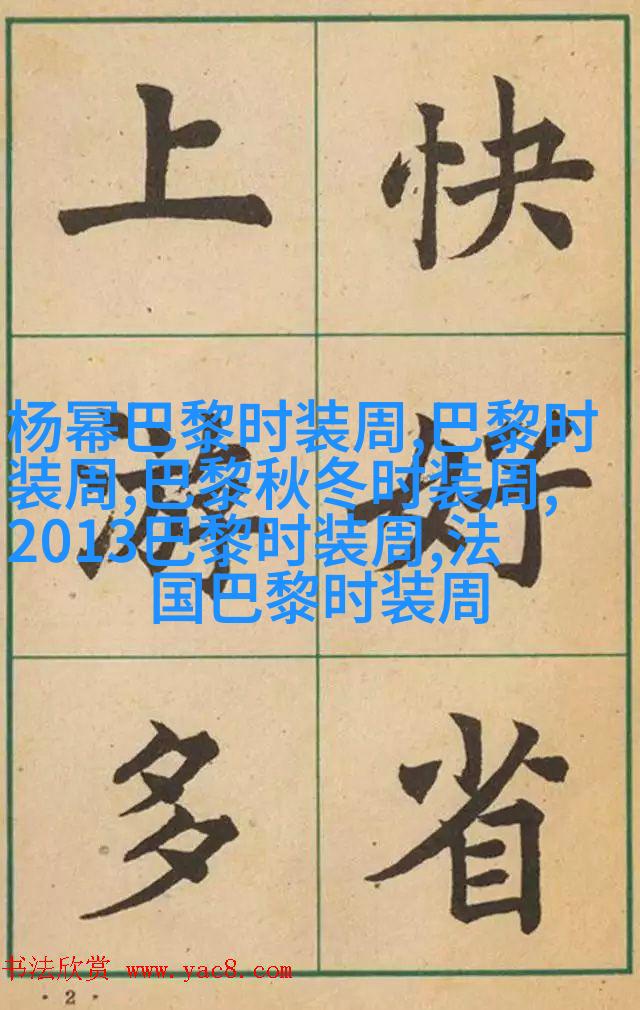 上游多
快好省
杨幂巴黎时装周,巴黎时
装周,巴黎秋冬时装周,
2013巴黎时装周,法
国巴黎时装周
书法欣赏 www.yac8.com
· 2 ·